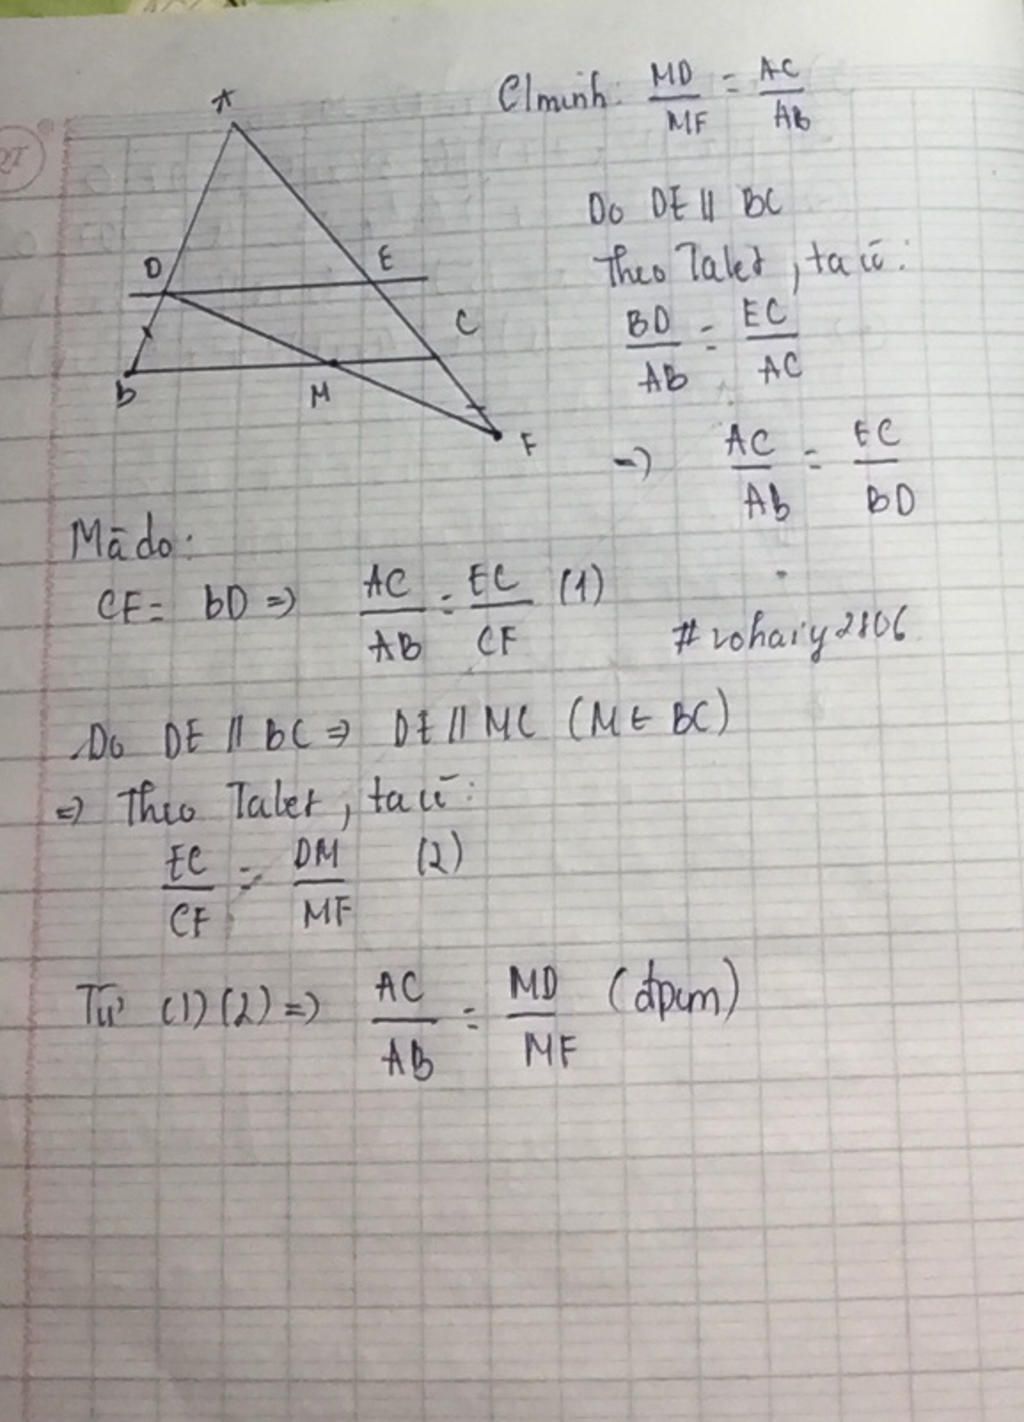 A
D
E
C
B
M
F
C/minh: MD/MF = AC/AB
Do DE // BC
Theo Talet, ta có:
BD/AB = EC/AC
=> AC/AB = EC/BD
Mà do:
CF = BD => AC/AB = EC/CF (1)
#vohaiy2806
Do DE // BC => DE // MC (M ∈ BC)
=> Theo Talet, ta có:
EC/CF = DM/MF (2)
Từ (1) (2) => AC/AB = MD/MF (đpcm)